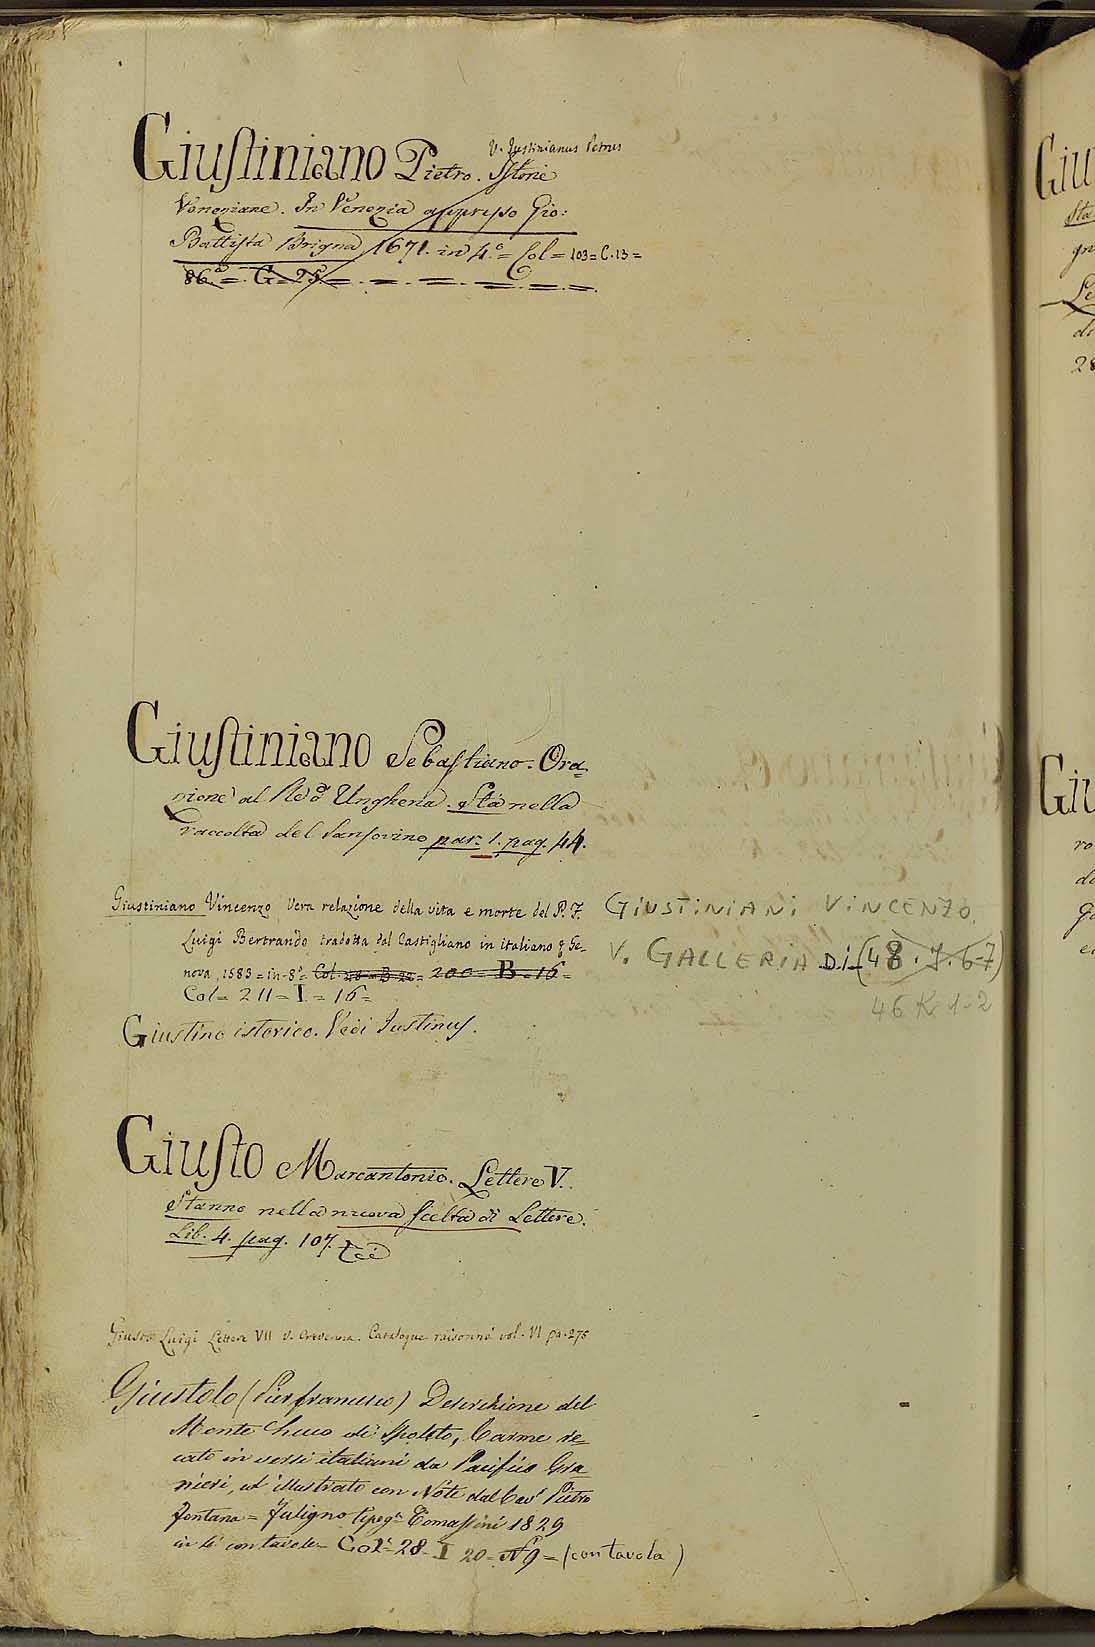 V. Justinianus Petrus
Giustiniano Pietro. Istorie
Veneziane. In Venezia appresso Gio:
Battista Brigna 1671. in 4.° = Col = 103 = C. 13 =
86.a = G = 25 =
Giustiniano Sebastiano. Ora-
zione al Re d'Ungheria. Sta nella
raccolta del Sansovino par: 1. pag. 44.
Giustiniano Vincenzo Vera relazione della vita e morte del P. F.
Luigi Bertrando tradotta dal Castigliano in italiano Ge-
nova, 1583 = in-8° = Col. = 200 = B = 16 =
Col = 211 = I = 16 =
GIUSTINIANI VINCENZO.
V. GALLERIA DI (48. 7. 6-7)
46 K 1-2
Giustino istorico. Vedi Justinus.
Giusto Marcantonio. Lettere V.
Stanno nella nuova scelta di Lettere.
Lib. 4. pag. 107.
Giusto Luigi Lettere VII V. Crevenna. Catalogue raisonné vol. VI pa. 275
Giustolo (Pierfrancesco) Descrizione del
Monte Luco di Spoleto, Carme re-
cato in versi italiani da Pacifico Gra-
nieri, ed illustrato con Note dal Cav.r Pietro
Fontana = Fuligno tipog.a Tomassini 1829
in con tavole = Col. 28 = I 20 = N° 9 = (con tavola)